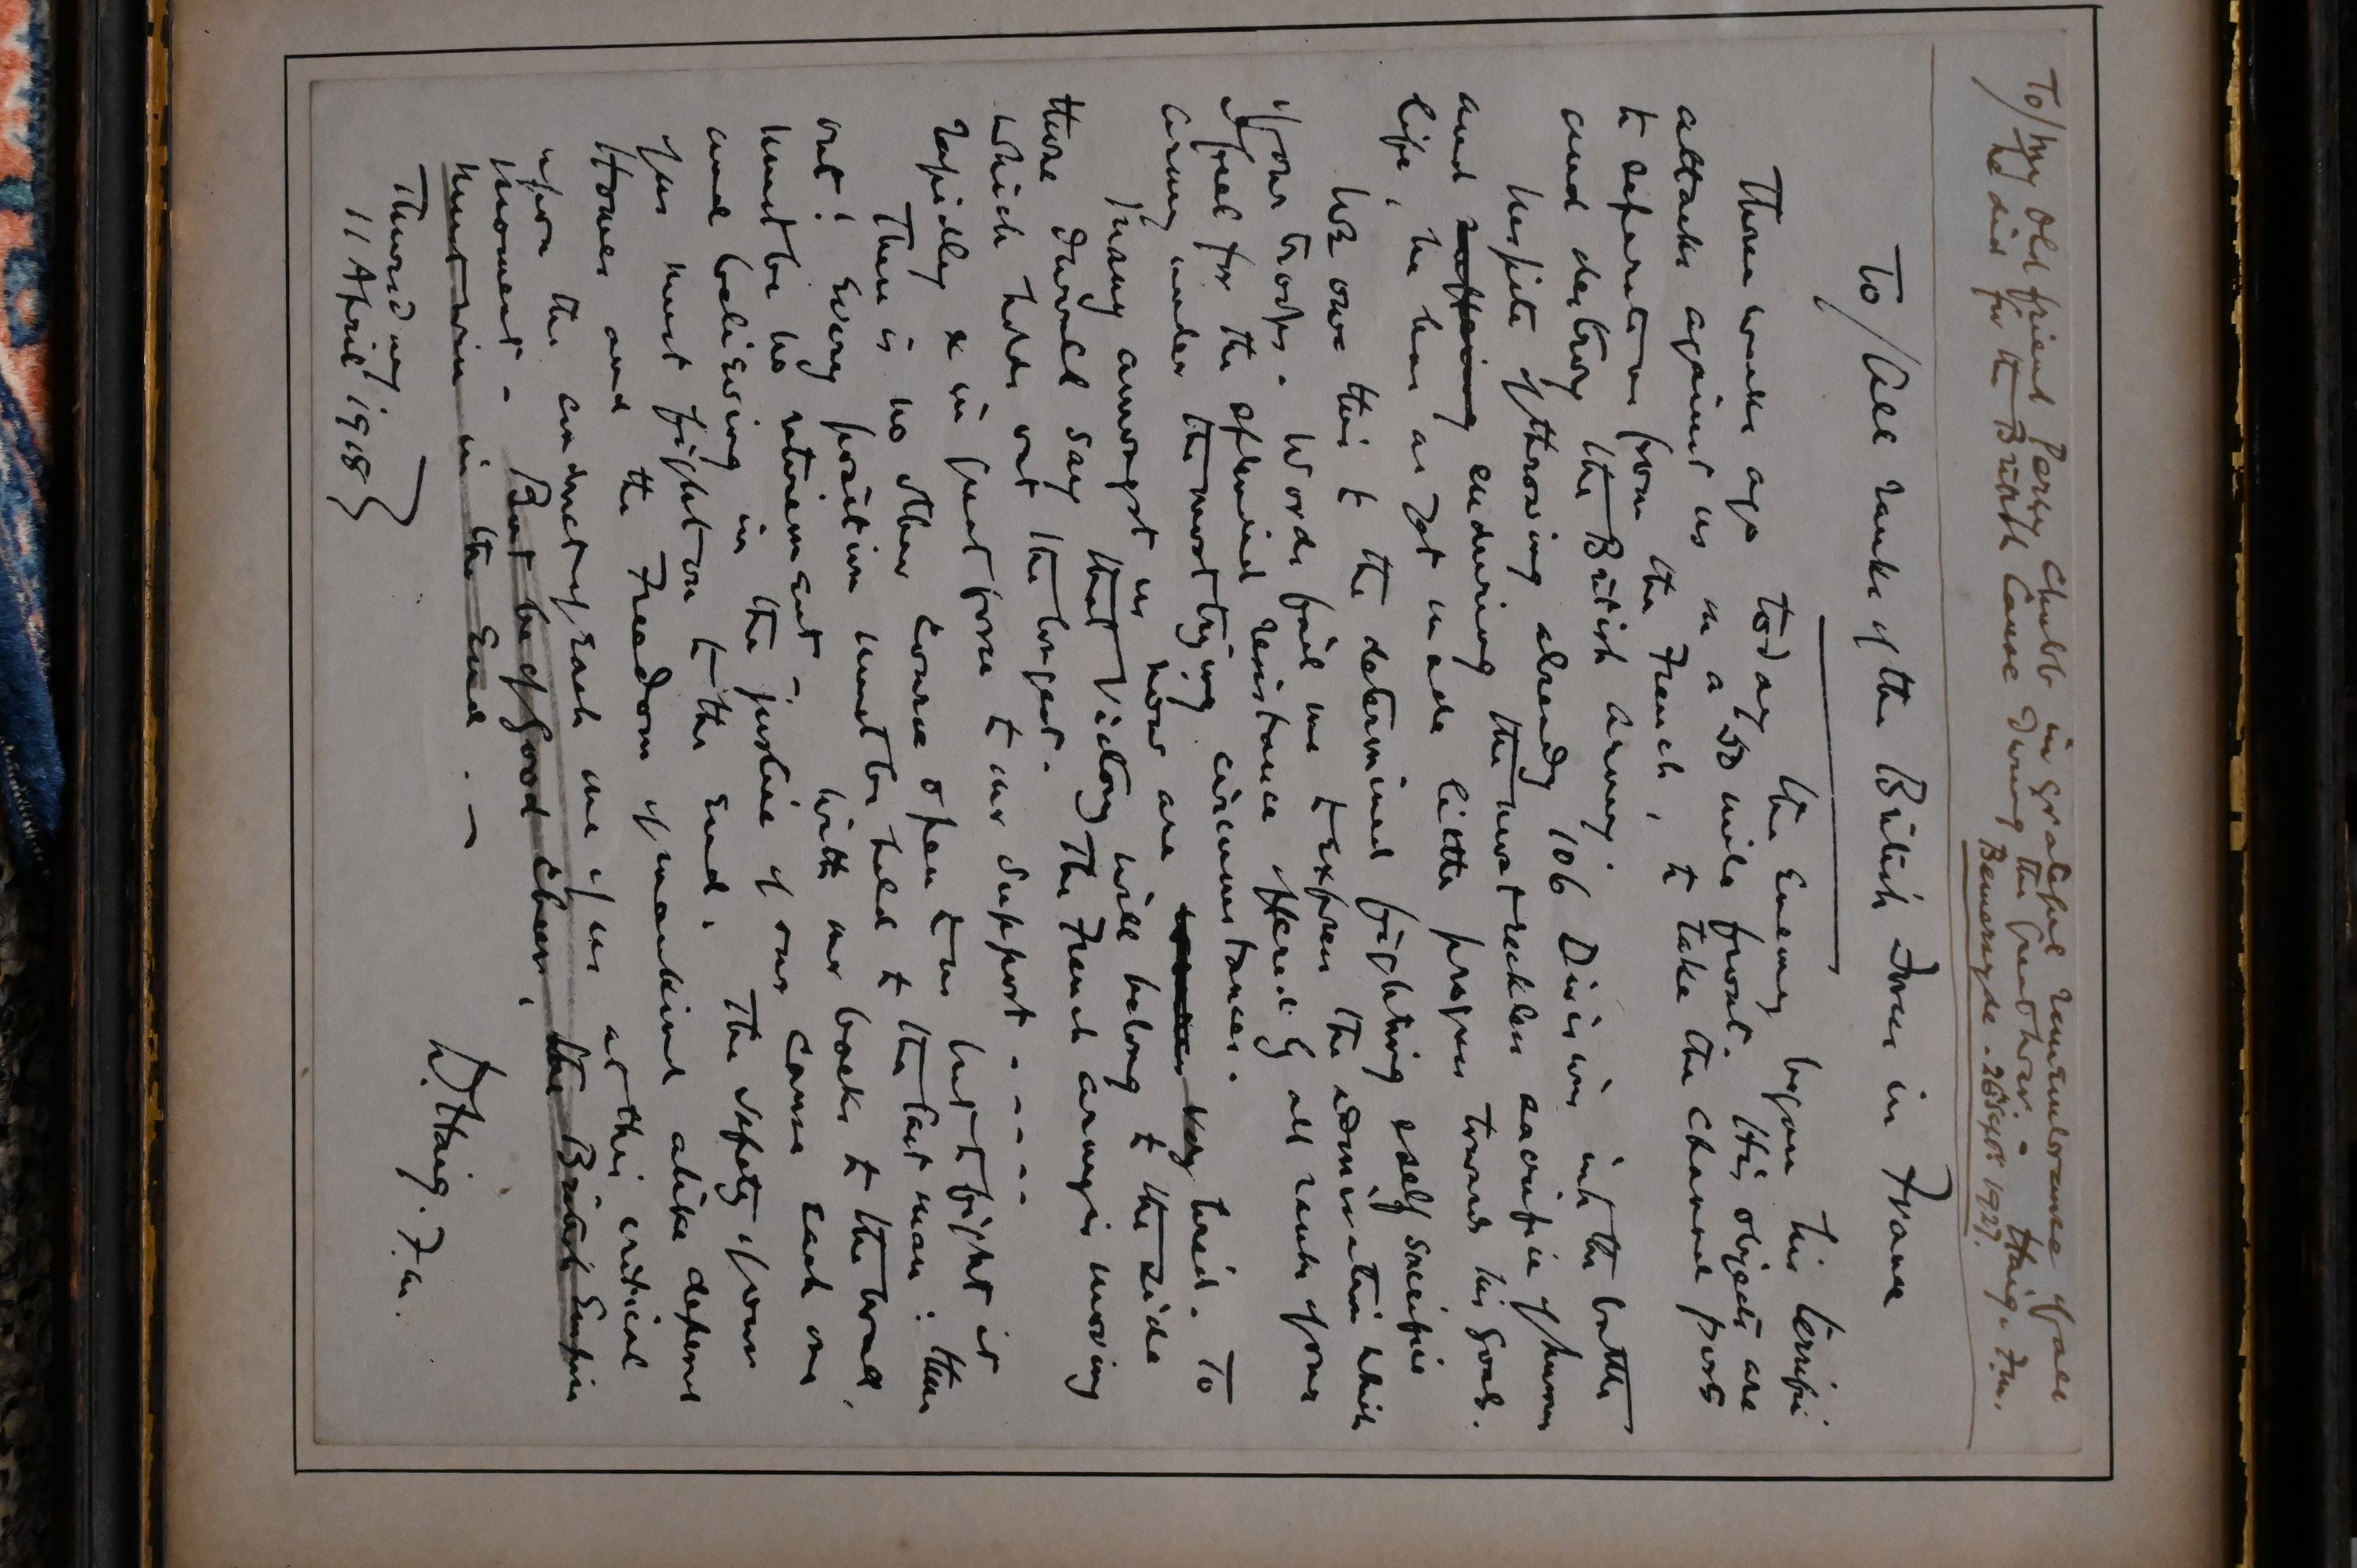 To/ My old friend Percy Chubb in grateful remembrance of all
he did for the British Cause during the Great War - Haig. F.M.
Bemersyde. 26 Sept 1927.
To/ All ranks of the British Forces in France
Three weeks ago today the Enemy began his terrific
attacks against us on a 50 mile front. His objects are
to separate us from the French, to take the Channel ports
and destroy the British Army.
In spite of throwing already 106 Divisions into the battle
and enduring the most reckless sacrifice of human
life, he has as yet made little progress towards his goals.
We owe this to the determined fighting & self sacrifice
of our troops. Words fail me to express the admiration which
I feel for the splendid resistance offered by all ranks of our
Army under the most trying circumstances.
Many amongst us now are very tired. To
those I would say that Victory will belong to the side
which holds out the longest. The French Army is moving
rapidly & in great force to our support. - - - -
There is no other course open to us but to fight it
out! Every position must be held to the last man: there
must be no retirement. With our backs to the wall,
and believing in the justice of our cause each one
of us must fight on to the end. The safety of our
Homes and the Freedom of mankind alike depend
upon the conduct of each one of us at this critical
moment. - But be of good cheer, the British Empire
must win in the end. —
Thursday
11 April 1918 }
D. Haig. F.M.